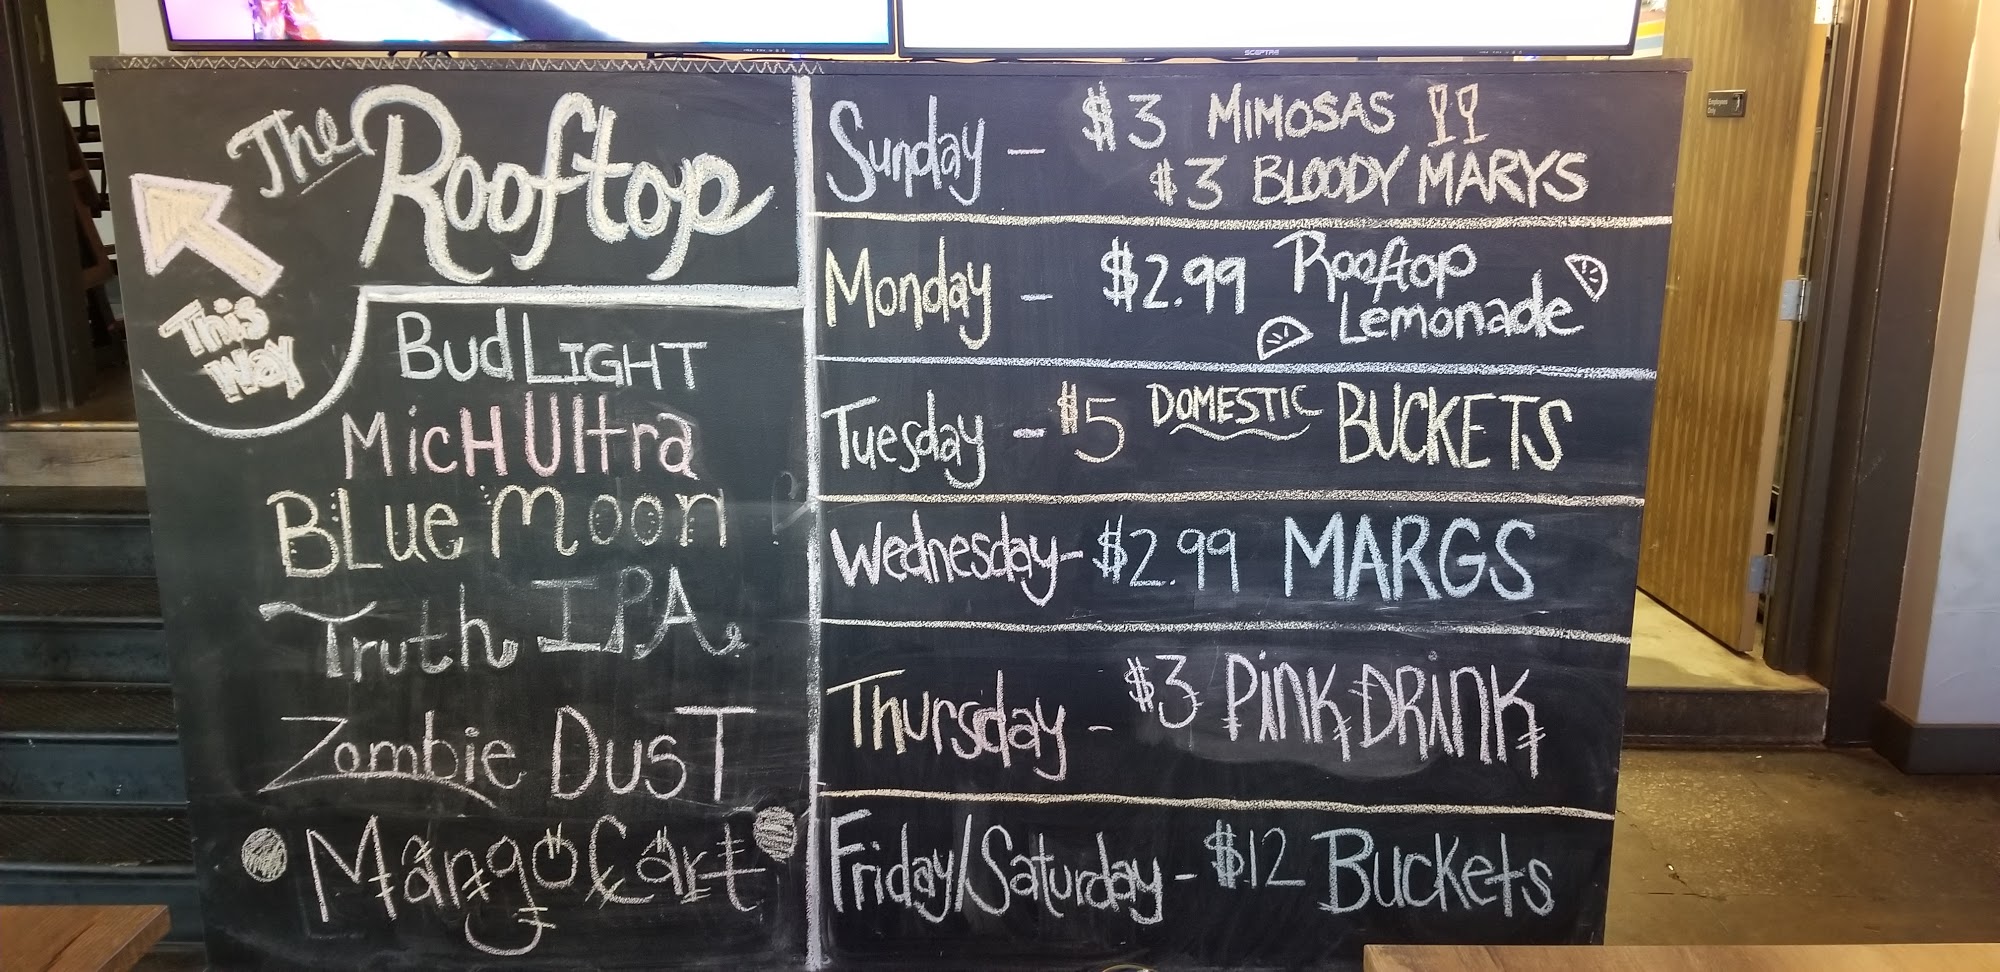 SCEPTRE
Employees
Only
The Rooftop
This
Way
Bud LIGHT
MicH Ultra
BLue Moon
Truth IPA
Zombie DusT
Mango Cart
Sunday - $3 MIMOSAS
$3 BLOODY MARYS
Monday - $2.99 Rooftop
Lemonade
Tuesday - $5 DOMESTIC BUCKETS
Wednesday - $2.99 MARGS
Thursday - $3 PiNK DRiNK
Friday/Saturday - $12 Buckets